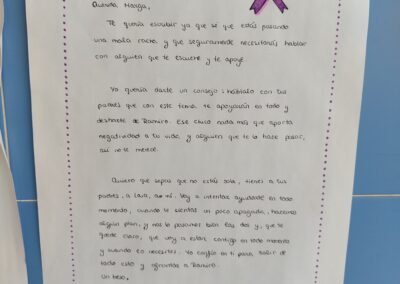 Querida Marga,
Te quería escribir ya que sé que estás pasando
una mala racha, y que seguramente necesitarás hablar
con alguien que te escuche y te apoye.
Yo quería darte un consejo: háblalo con tus
padres que con este tema, te apoyarán en todo y
deshazte de Ramiro. Ese chico nada más que aporta
negatividad a tu vida, y alguien que te lo hace pasar,
así no te merece.
Quiero que sepas que no estás sola, tienes a tus
padres, a Lara, a mí. Voy a intentar ayudarte en todo
momento, cuando te sientas un poco apagada, hacemos
algún plan, y nos lo pasamos bien las dos y, que te
quede claro, que voy a estar contigo en todo momento
y cuando lo necesites. Yo confío en ti para salir de
todo esto y afrontar a Ramiro.
Un beso.